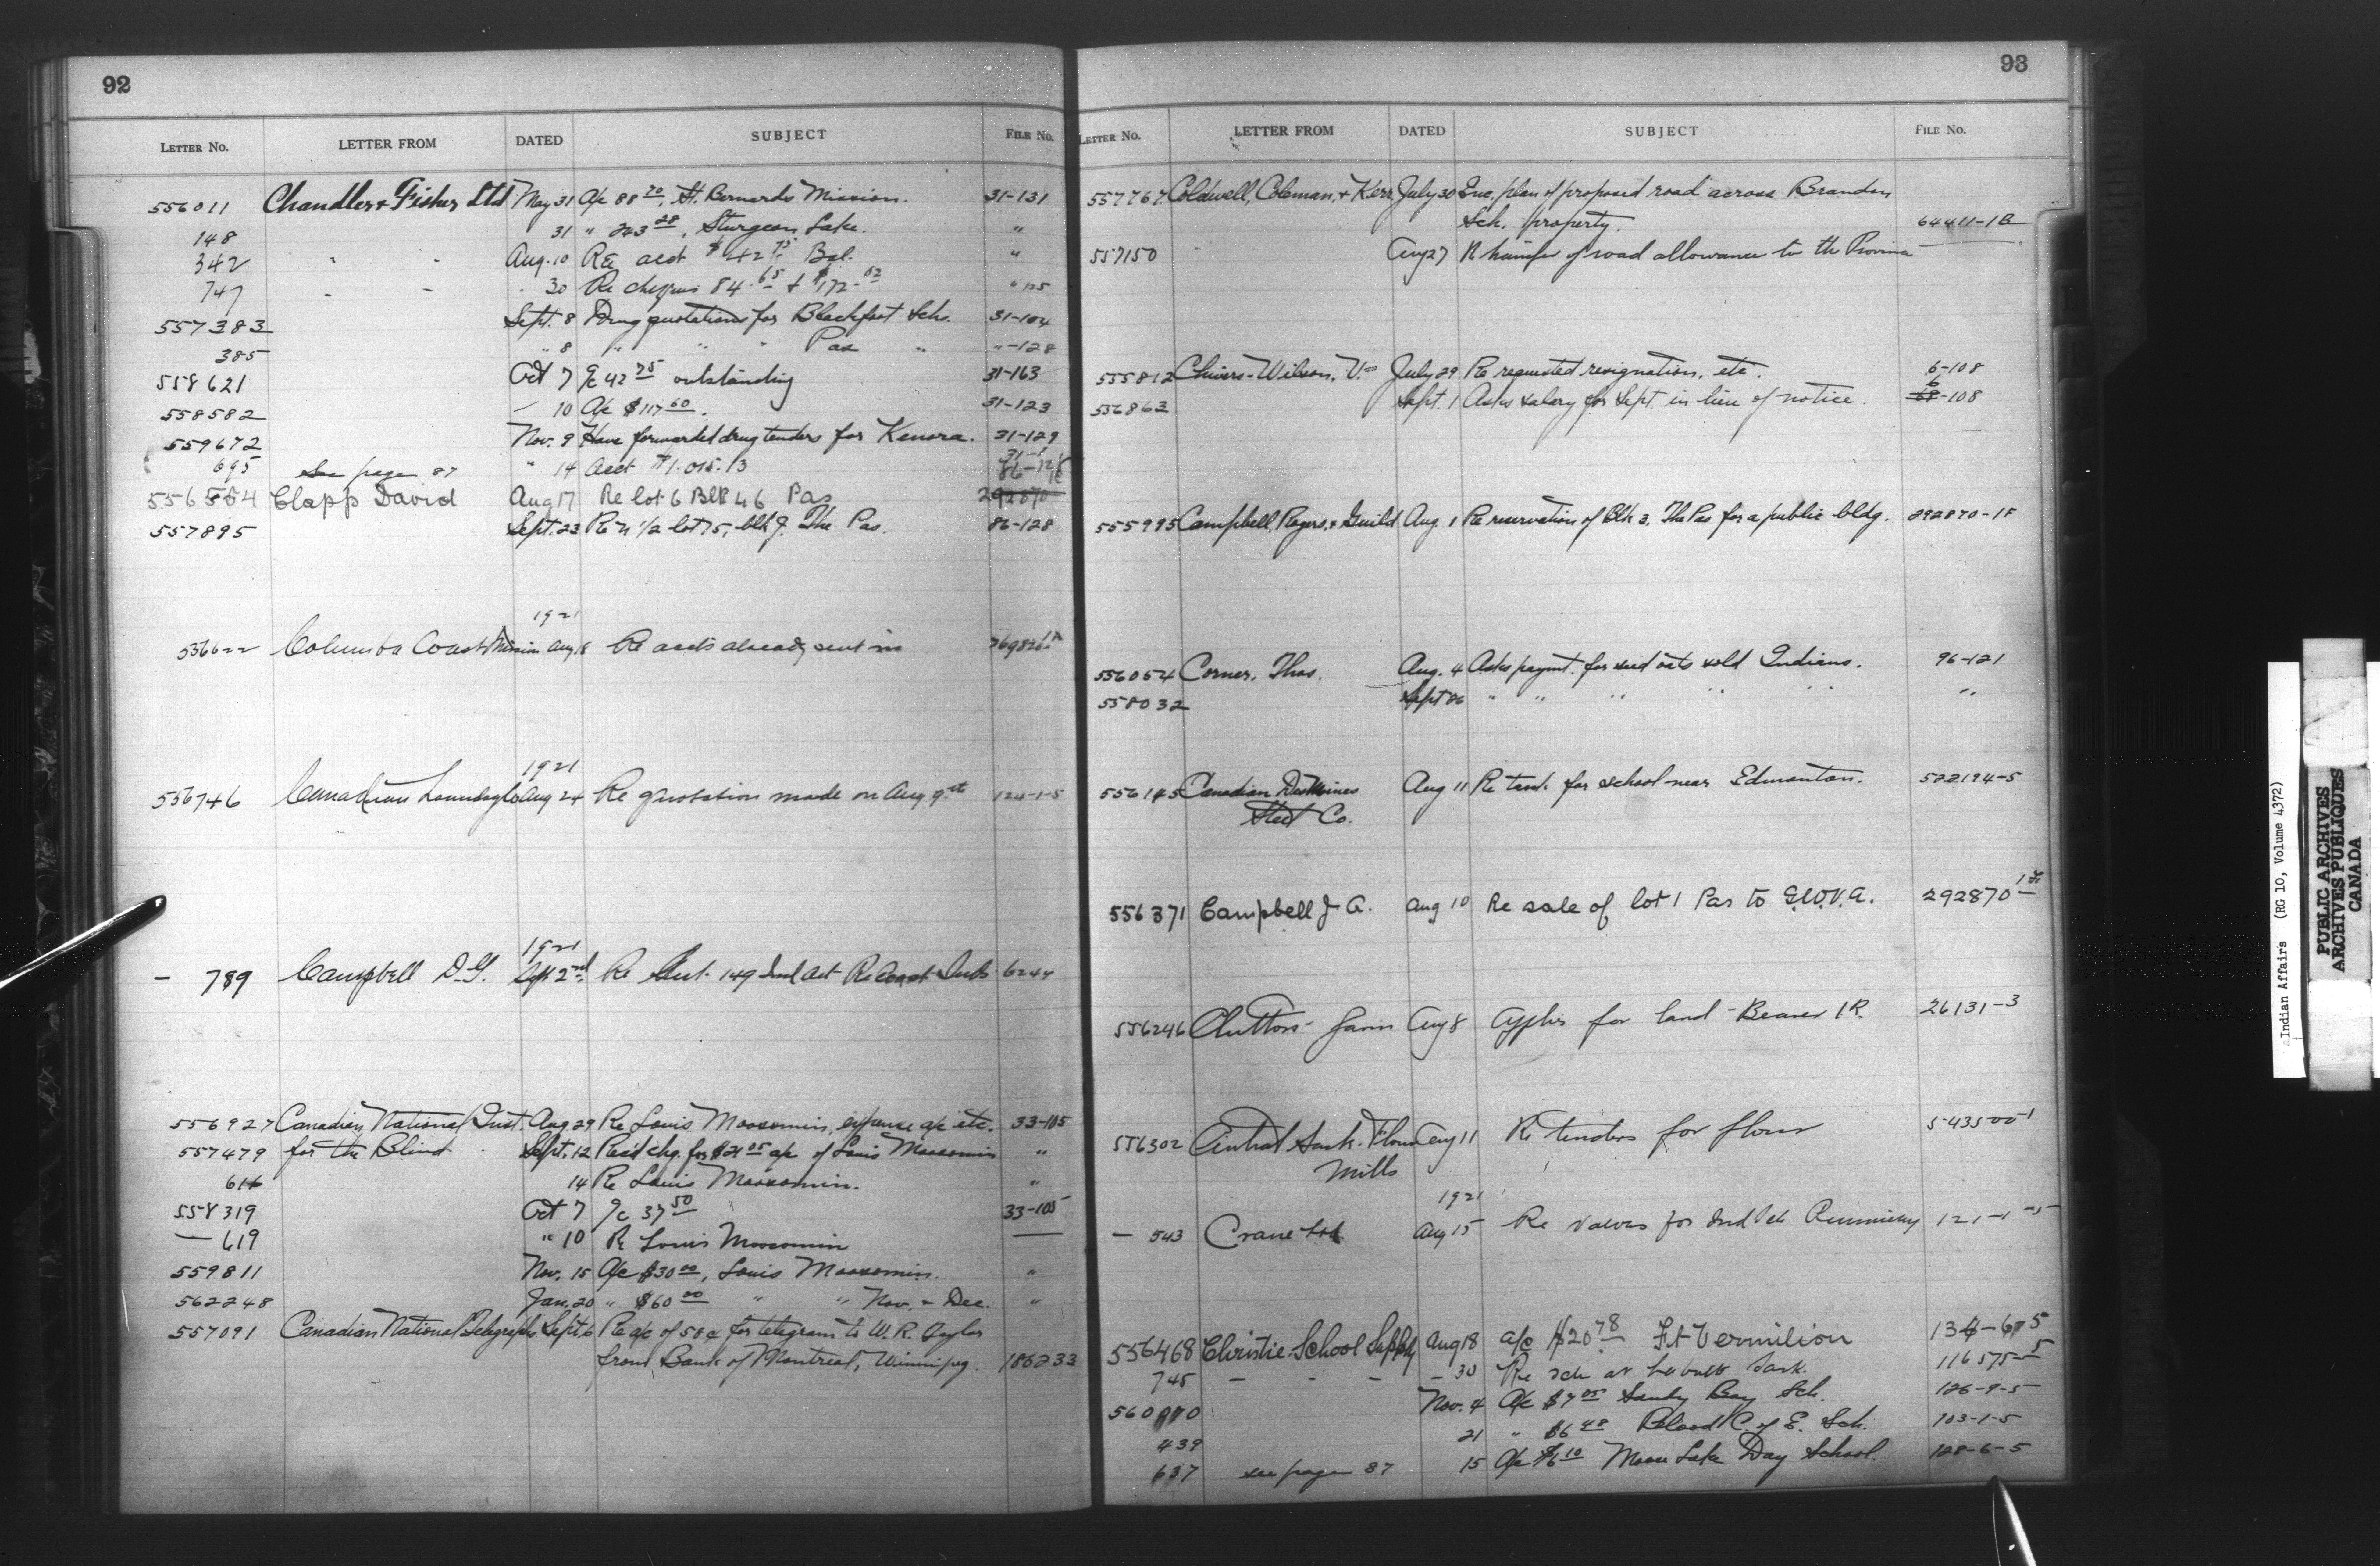 92
LETTER No. LETTER FROM DATED SUBJECT FILE No.
556011 Chandler & Fisher Ltd May 31 A/c 88 70, St. Bernards Mission. 31-131
148 31 " 243 28, Sturgeon Lake. "
342 " - Aug. 10 Re acct $42 75 Bal. "
747 - - 30 Re cheques 84.65 & $172.02 "
557383 Sept. 8 Drug quotations for Blackfoot Schs. 31-104
385 " 8 " " " Pas " "-128
558621 Oct 7 a/c 42 75 outstanding 31-163
558582 — 10 A/c $117 60. 31-123
559672 Nov. 9 Have forwarded drug tenders for Kenora. 31-129
695 See page 87 " 14 Acct $1.015.13 31-1
556554 Clapp David Aug 17 Re lot 6 Blk 46 Pas 292870 86-128
557895 Sept. 23 Re N 1/2 lot 75, blk J. The Pas. 86-128
1921
556622 Columbia Coast Mission Aug 18 Re accts already sent in 369826 1A
1921
556746 Canadian Laundry Co Aug 24 Re quotation made on Aug 9 st 124-1-5
1921
— 789 Campbell D. G. Sept 2nd Re Sect. 149 Ind Act Re Coast Inds 6244
556927 Canadian National Inst. Aug 29 Re Louis Moosomin, expense a/c etc. 33-105
557479 for the Blind Sept. 12 Rec'd chq. for $21 05 a/c of Louis Moosomin "
616 14 Re Louis Moosomin. "
558319 Oct 7 a/c 37 50 33-105
— 619 " 10 Re Louis Moosomin —
559811 Nov. 15 A/c $30 00, Louis Moosomin. "
562248 Jan. 20 " $60 00 " " Nov. & Dec. "
557091 Canadian National Telegraphs Sept. 6 Re a/c of 58¢ for telegram to W. R. Taylor
from Bank of Montreal, Winnipeg. 186233
93
LETTER No. LETTER FROM DATED SUBJECT FILE No.
557767 Coldwell, Coleman, & Kerr July 30 Enc. plan of proposed road across Brandon
Sch. property. 64411-1B
557150 Aug 27 Re transfer of road allowance to the Province
555812 Chivers-Wilson, V. July 29 Re requested resignation, etc. 6-108
556863 Sept. 1 Asks salary for Sept. in lieu of notice. 6 68-108
555995 Campbell, Rogers, & Guild Aug. 1 Re reservation of Blk 3, The Pas for a public bldg. 292870-1F
556054 Corner, Thos. Aug. 4 Asks paymt. for seed oats sold Indians. 96-121
558032 Sept 26 " " " " " "
556145 Canadian Des Moines Aug 11 Re tank for school near Edmonton. 522194-5
Steel Co.
556371 Campbell J A. Aug 10 Re sale of lot 1 Pas to G.W.V.A. 292870 1F
556246 Clutton - Aug 8 Applies for land - Beaver I R. 26131-3
556302 Central Sask. Flour Aug 11 Re tenders for flour 543500-1
Mills
1921
— 543 Crane Ltd Aug 15 Re valves for Ind Sch 121-1-5
556468 Christie School Supply Aug 18 a/c $20 78 Ft Vermilion 134-6-5
745 - - - - 30 Re sch at Sask. 116575-5
560 Nov. 4 A/c $7 05 Sandy Bay Sch. 126-9-5
439 21 " $6 48 Blood C. of E. Sch. 103-1-5
637 see page 87 15 A/c $6 10 Moose Lake Day School. 128-6-5
Indian Affairs (RG 10, Volume 4372)
PUBLIC ARCHIVES
ARCHIVES PUBLIQUES
CANADA